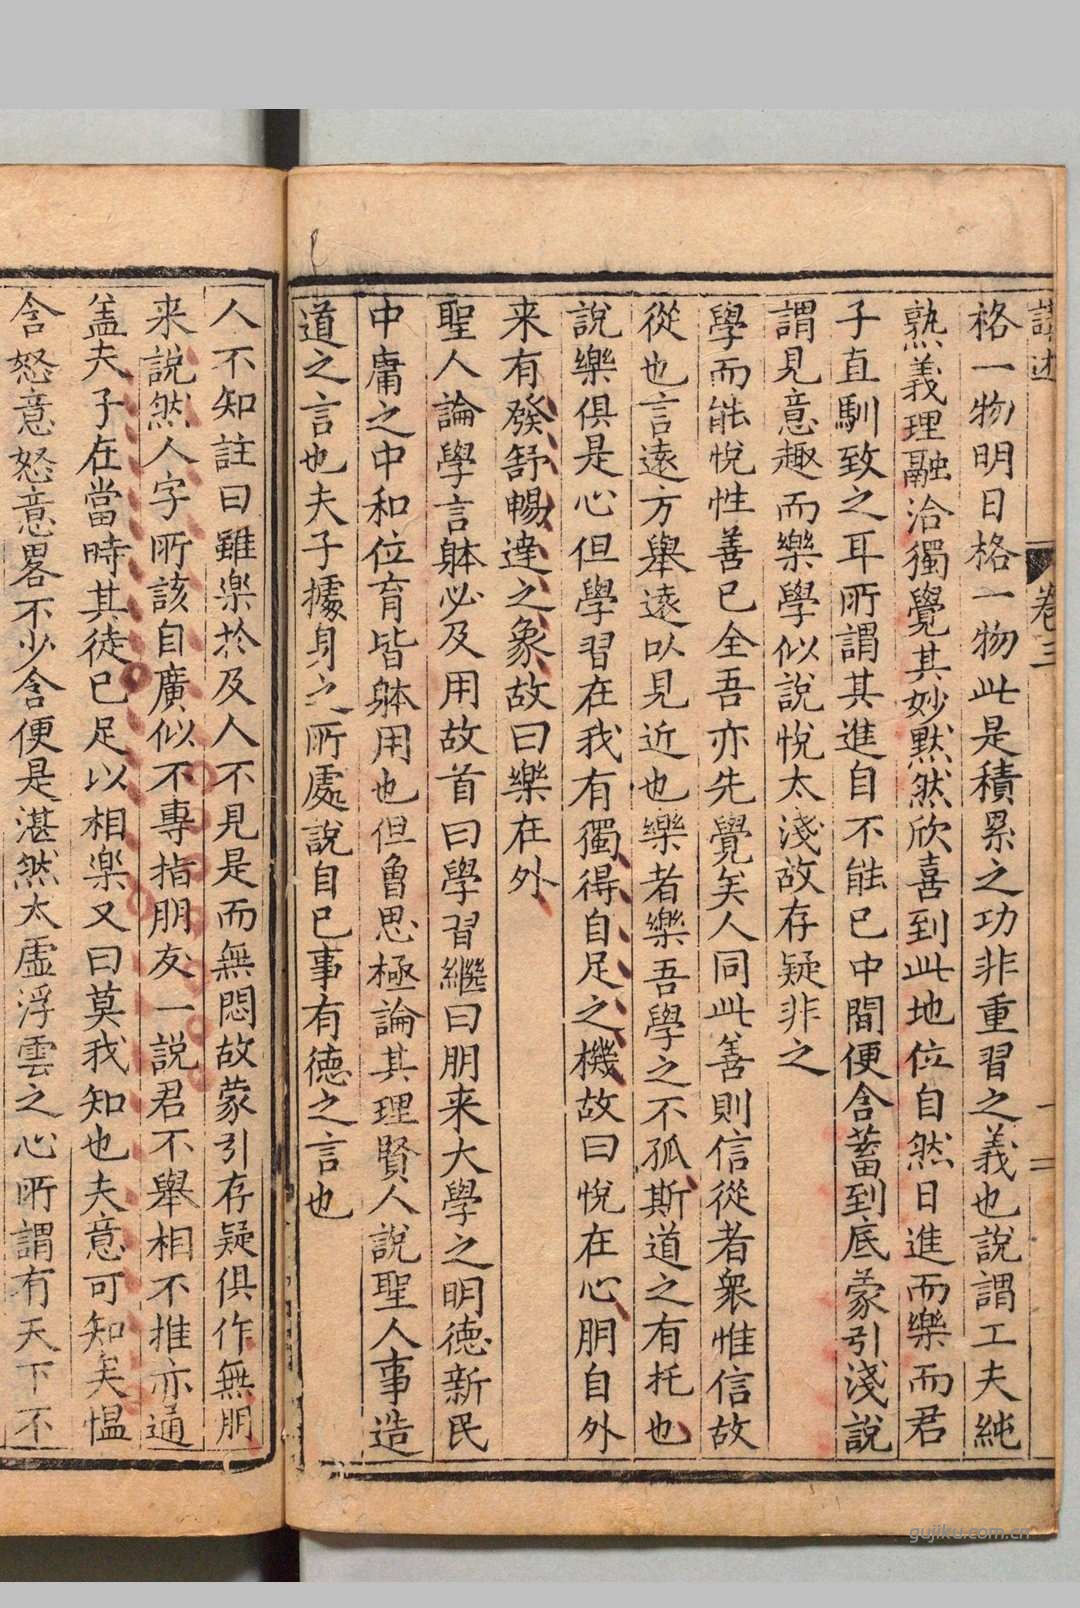 講述 卷三 二
格一物明日格一物此是積累之功非重習之義也說謂工夫純
熟義理融洽獨覺其妙默然欣喜到此地位自然日進而樂而君
子直馴致之耳所謂其進自不能已中間便含蓄到底蒙引淺說
謂見意趣而樂學似說悅太淺故存疑非之
學而能悅性善已全吾亦先覺矣人同此善則信從者衆惟信故
從也言遠方舉遠以見近也樂者樂吾學之不孤斯道之有托也
說樂俱是心但學習在我有獨得自足之機故曰悅在心朋自外
来有發舒暢達之象故曰樂在外
聖人論學言躰必及用故首曰學習繼曰朋来大學之明德新民
中庸之中和位育皆躰用也但曾思極論其理賢人說聖人事造
道之言也夫子據身之所處說自已事有德之言也
人不知註曰雖楽扵及人不見是而無悶故蒙引存疑俱作無朋
来說然人字所該自廣似不專指朋友一說君不舉相不推亦通
盖夫子在當時其徒已足以相楽又曰莫我知也夫意可知矣愠
含怒意怒意畧不少含便是湛然太虛浮雲之心所謂有天下不
gujiku.com.cn